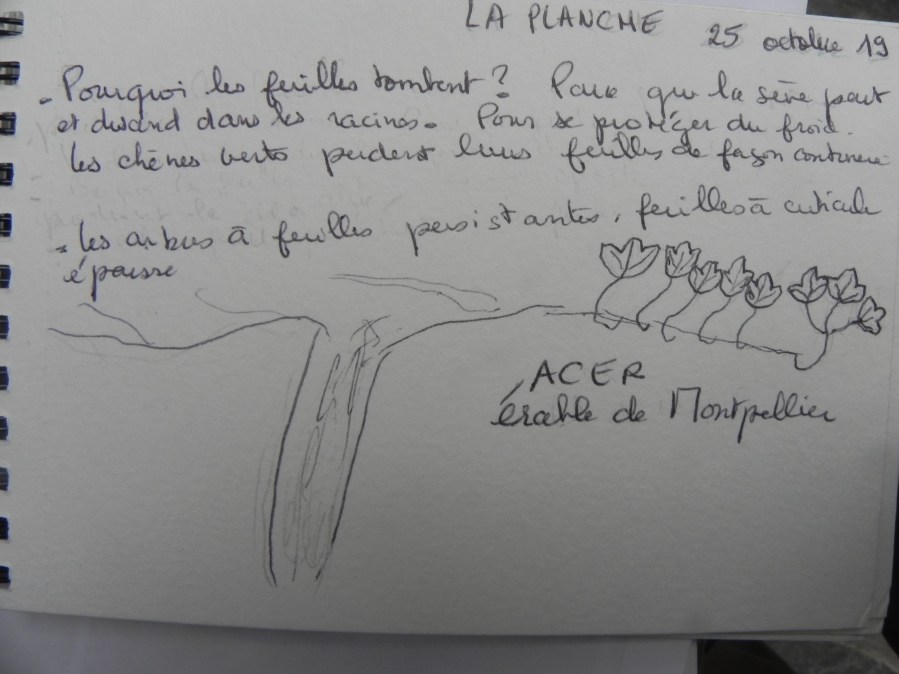 LA PLANCHE 25 octobre 19
- Pourquoi les feuilles tombent? Parce que la sève part
et descend dans les racines. Pour se protéger du froid.
Les chênes verts perdent leurs feuilles de façon continue
- Les arbres à feuilles persistantes, feuilles à cuticule
épaisse
ACER
érable de Montpellier